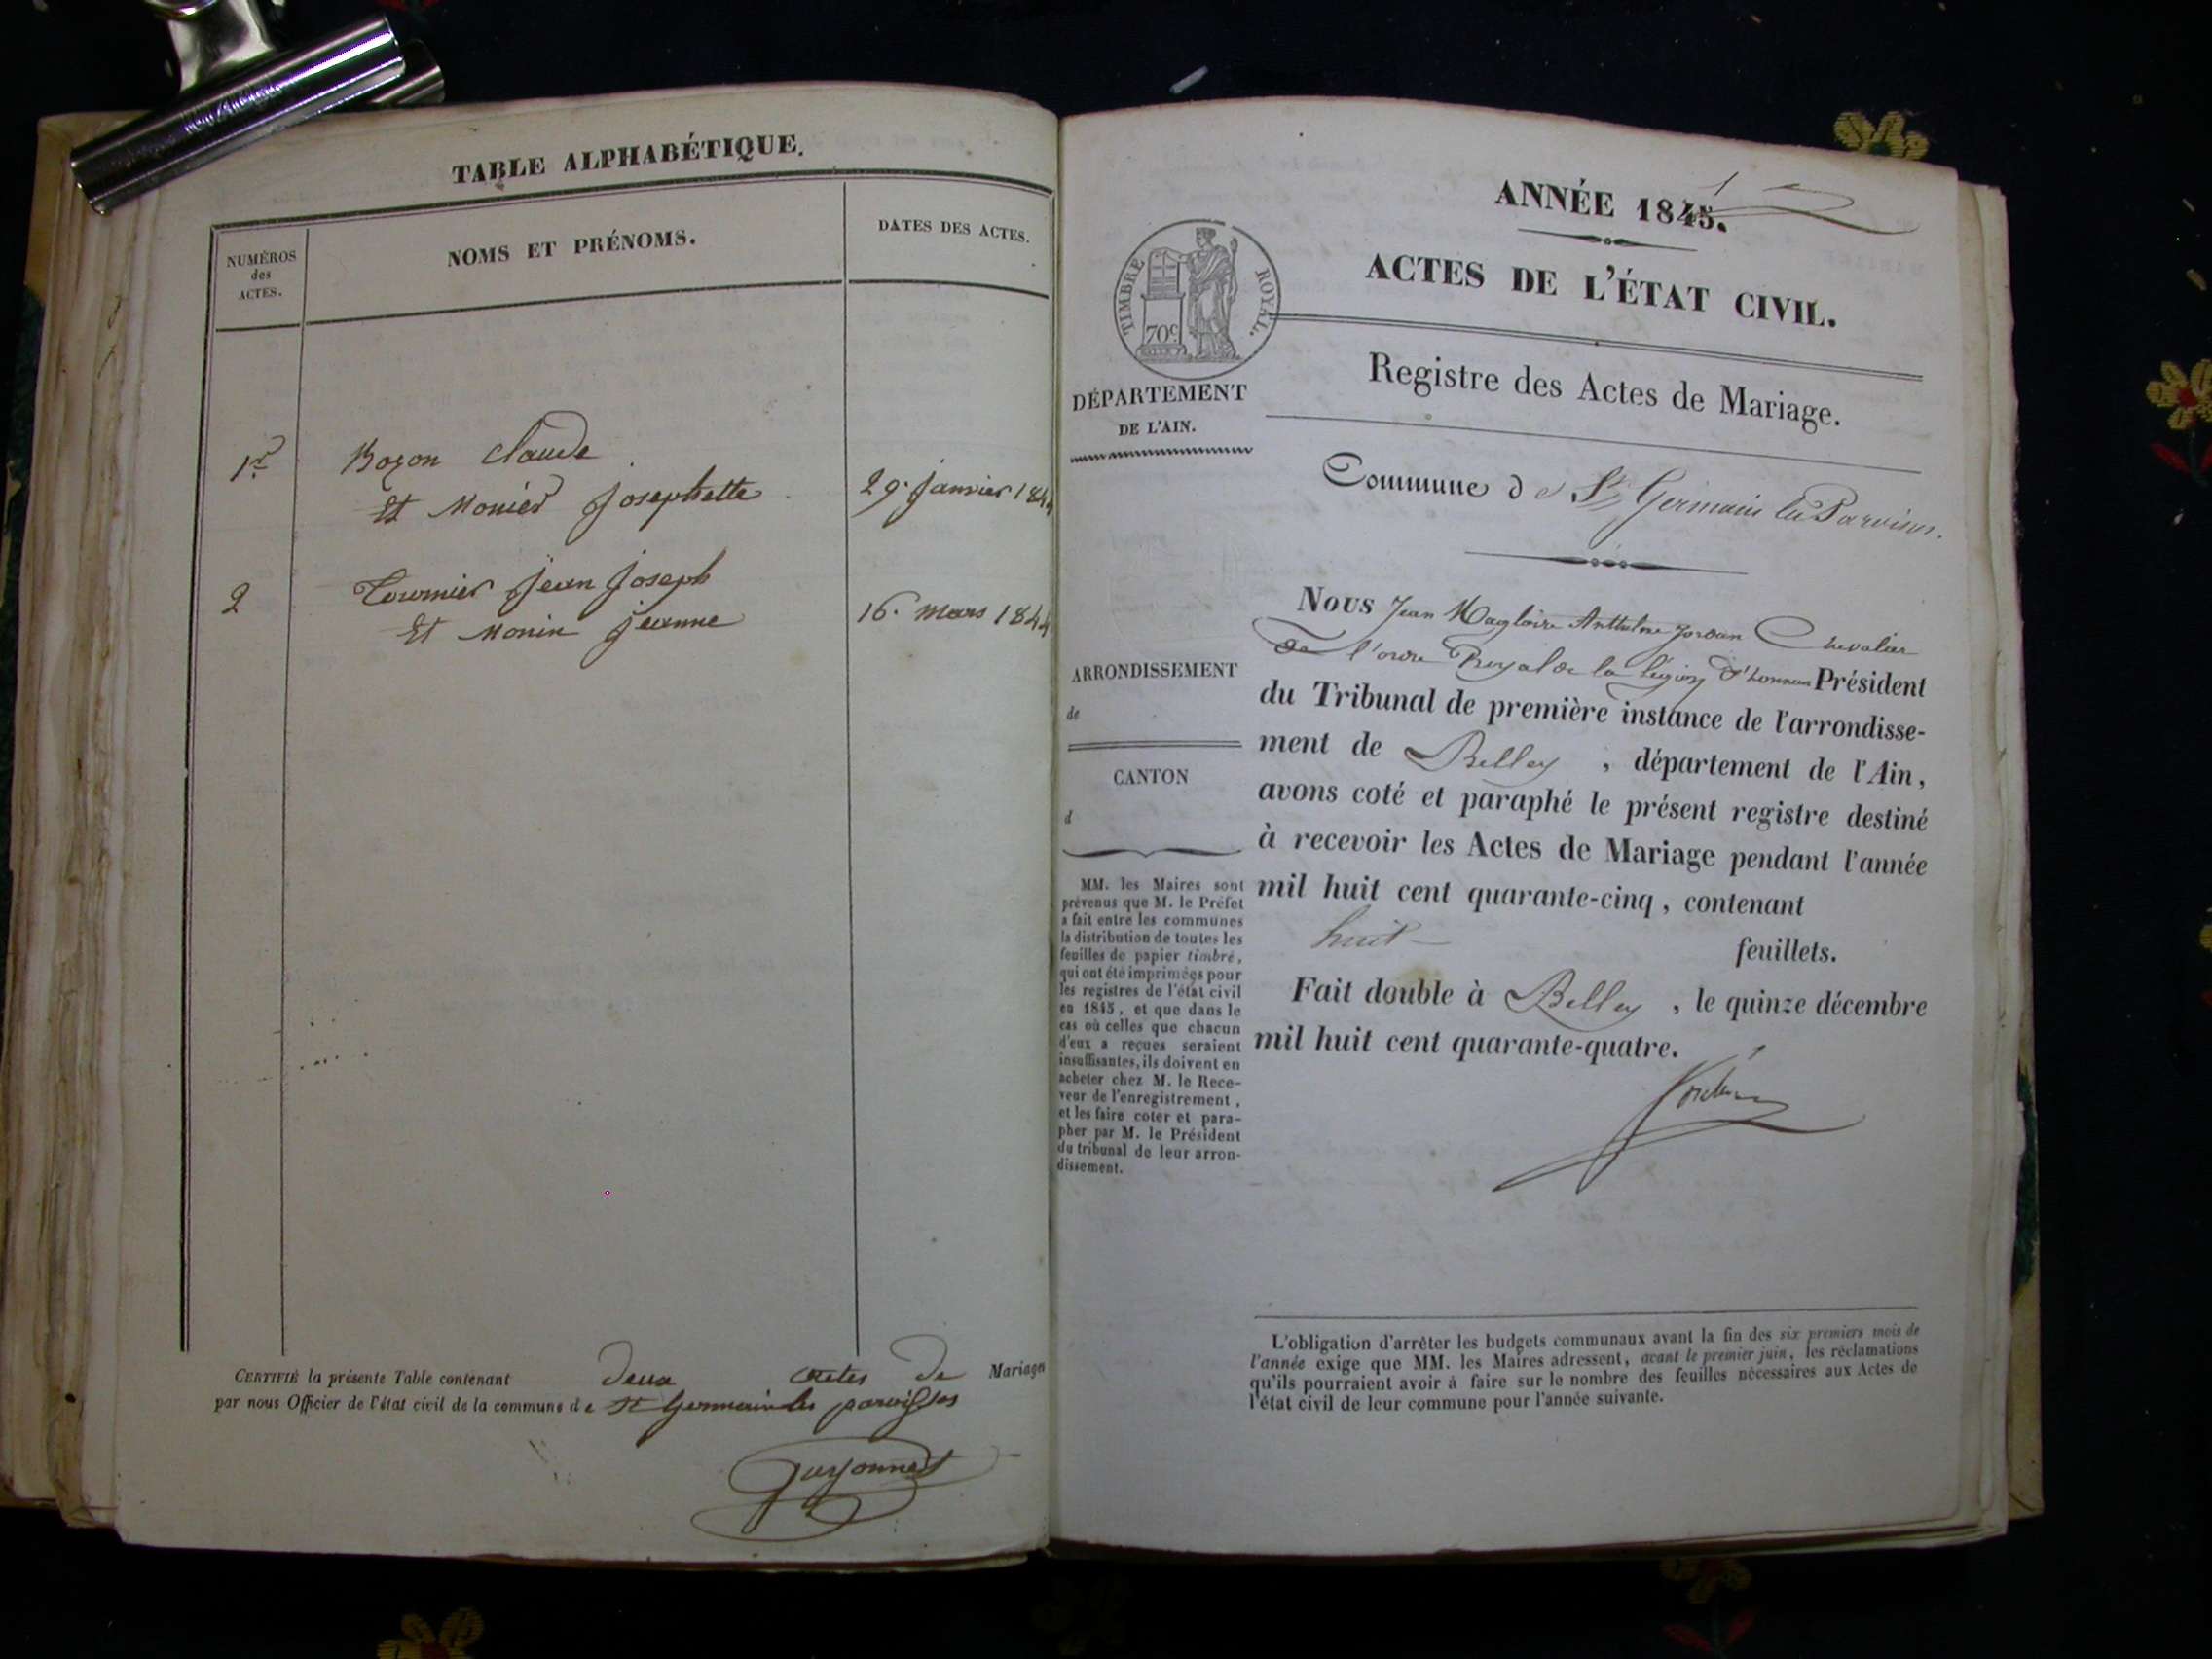 TABLE ALPHABÉTIQUE.
NUMÉROS
des
ACTES.
NOMS ET PRÉNOMS.
DATES DES ACTES.
1er Bozon Claude
Et Monier Josephette 29. Janvier 1844
2 Tournier Jean Joseph
Et Monin Jeanne 16. Mars 1844
CERTIFIÉ la présente Table contenant deux actes de Mariages
par nous Officier de l'état civil de la commune de St Germain les paroisses
ANNÉE 1845.
1
TIMBRE ROYAL.
70c
DÉPARTEMENT
DE L'AIN.
ARRONDISSEMENT
de
CANTON
d
MM. les Maires sont
prévenus que M. le Préfet
a fait entre les communes
la distribution de toutes les
feuilles de papier timbré,
qui ont été imprimées pour
les registres de l'état civil
en 1845, et que dans le
cas où celles que chacun
d'eux a reçues seraient
insuffisantes, ils doivent en
acheter chez M. le Rece-
veur de l'enregistrement,
et les faire coter et para-
pher par M. le Président
du tribunal de leur arron-
dissement.
ACTES DE L'ÉTAT CIVIL.
Registre des Actes de Mariage.
Commune de St Germain les Paroisses.
NOUS Jean Magloire Anthelme Jordan Chevalier
de l'ordre Royal de la légion d'honneur Président
du Tribunal de première instance de l'arrondisse-
ment de Belley, département de l'Ain,
avons coté et paraphé le présent registre destiné
à recevoir les Actes de Mariage pendant l'année
mil huit cent quarante-cinq, contenant
huit feuillets.
Fait double à Belley, le quinze décembre
mil huit cent quarante-quatre.
Jordan
L'obligation d'arrêter les budgets communaux avant la fin des six premiers mois de
l'année exige que MM. les Maires adressent, avant le premier juin, les réclamations
qu'ils pourraient avoir à faire sur le nombre des feuilles nécessaires aux Actes de
l'état civil de leur commune pour l'année suivante.